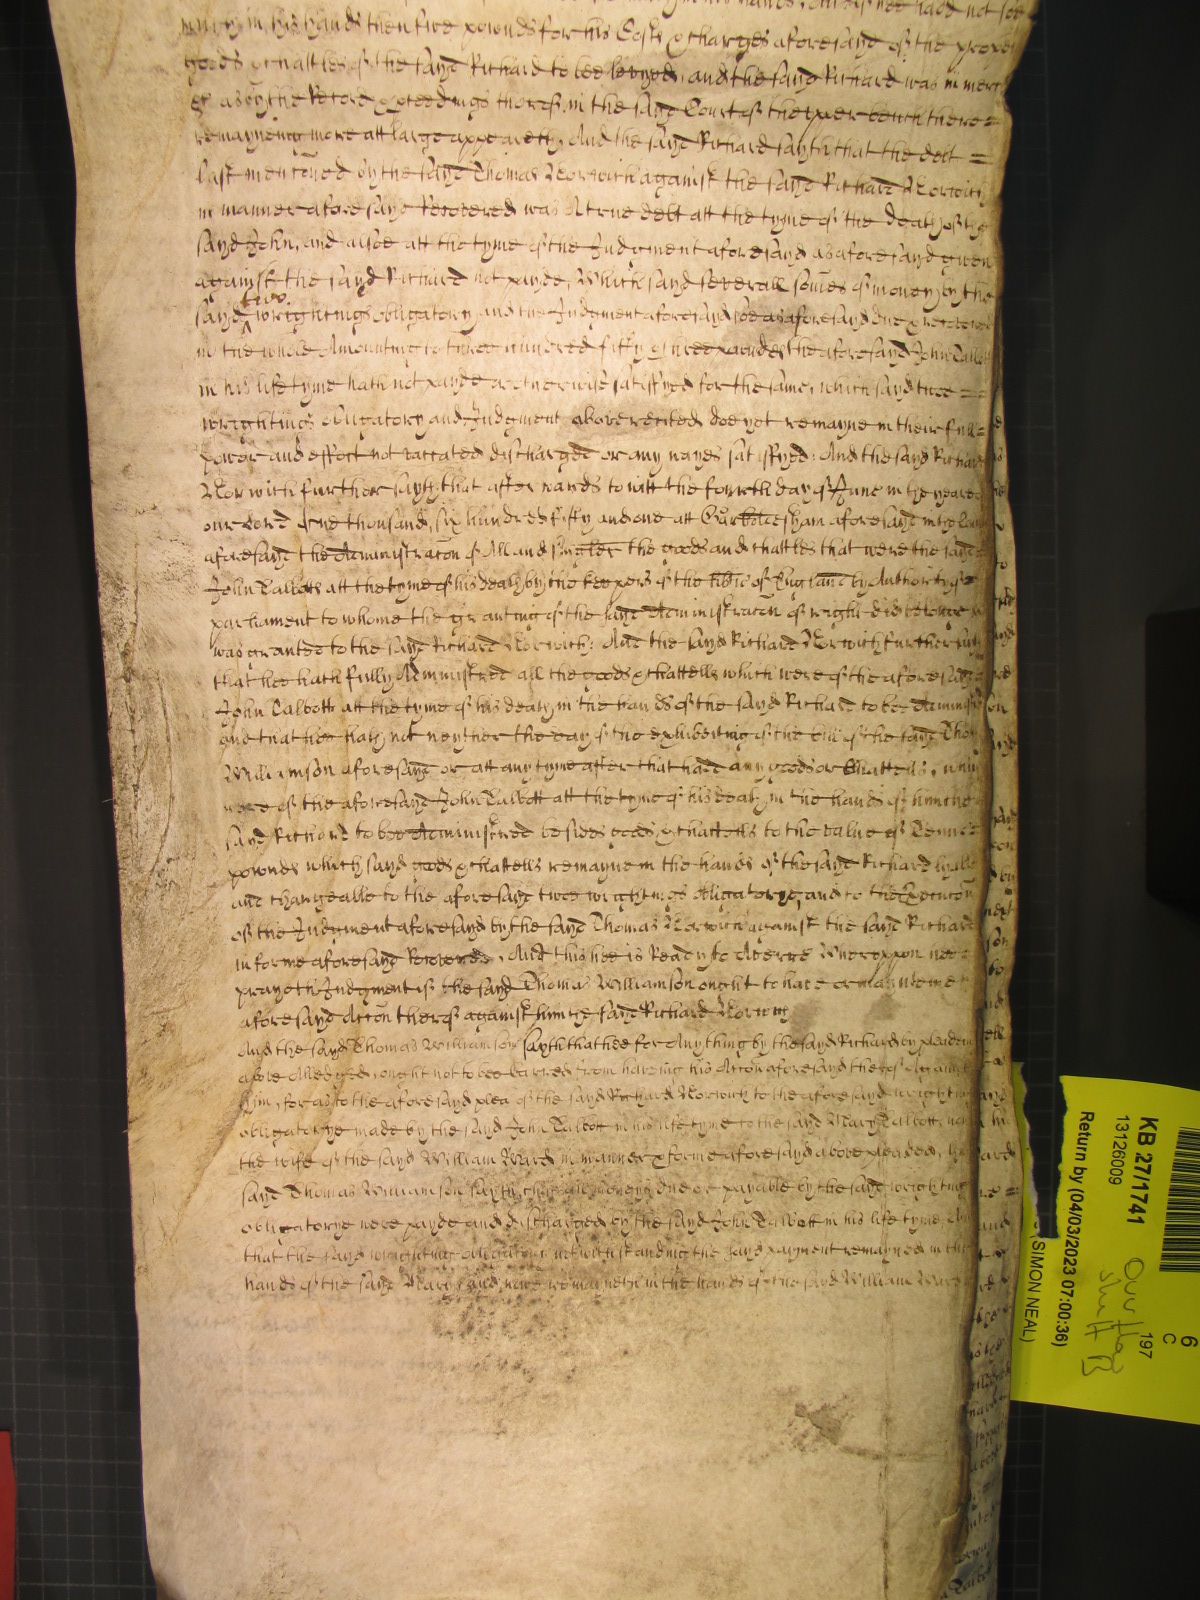 much in his hands then five pownds for his Costs & charges aforesayd of the proper
goods & chattles of the sayd Richard to bee levyed, and the sayd Richard was in mercy
&c as by the Record & proceedings thereof in the sayd Court of the upper bench there =
remayneing more att large appeareth, And the sayd Richard sayth that the debt =
last mentioned by the sayd Thomas Norwich against the sayd Richard Norwich
in manner aforesayd Recovered was A true debt att the tyme of the death of the
sayd John, and alsoe att the tyme of the Judgment aforesayd as aforesayd given
against the sayd Richard not payde, Which sayd severall somes of money by the
sayd two wrightings obligatory and the Judgment aforesayd soe as aforesayd due & recovered
in the whole Amounting to three hundred fifty & three pounds the aforesayd John Talbott
in his life tyme hath not payde or otherwise satisfyed for the same, which sayd twoe =
wrightings obligatory and Judgment above recited doe yet remayne in their full =
power and effect not vacated discharged or any wayes satisfyed: And the sayd Richard
Norwich further sayth that afterwards to witt the fourth day of June in the yeare of
our Lord One thousand, six hundred fifty and one att aforesayd in the County
aforesayd the Administracon of All and singler the goods and chattles that were the sayd
John Talbotts att the tyme of his death by the keepers of the libtie of England by Authority of
parliament to whome the granting of the sayd Administracon of right did belonge
was granted to the sayd Richard Norwich: And the sayd Richard Norwich further sayth
that hee hath fully Administred all the goods & chattells which were of the aforesayd
John Talbott att the tyme of his death in the hands of the sayd Richard to bee Administred
and that hee hath not neyther the day of the exhibiting of the bill of the sayd Thomas
Williamson aforesayd or att any tyme after that hadd any goods or Chattells, which
were of the aforesayd John Talbott att the tyme of his death in the hands of him the
sayd Richard to bee Administred besides goods & chattells to the value of Tenne
pownds which sayd goods & chattells remayne in the hands of the sayd Richard lyable
and chargeable to the aforesayd twoe wrightings obligatorye, and to the Execucon
of the Judgment aforesayd by the sayd Thomas Norwich against the sayd Richard
in forme aforesayd Recovered, And this hee is Ready to Averre Whereuppon hee
prayeth Judgment if the sayd Thomas Williamson ought to have or maintaine the
aforesayd Accon thereof against him the sayd Richard Norwich
And the sayd Thomas Williamson sayth that hee for Anything by the sayd Richard by pleading
above Alledged, ought not to bee barred from haveing his Accon aforesayd thereof Against
him, for as to the aforesayd plea of the sayd Richard Norwich to the aforesayd wrighting
obligatorye made by the sayd John Talbott in his life tyme to the sayd Mary Talbott, now
the wife of the sayd William Ward in manner & forme aforesayd above pleaded, the
sayd Thomas Williamson sayth, that all moneys due or payable by the sayd wrighting
obligatorye were payde and discharged by the sayd John Talbott in his life tyme, And
that the sayd wrighting obligatory notwithstanding the sayd payment remayned in the
hands of the sayd Mary and nowe remayneth in the hands of the sayd William Ward
KB 27/1741
13126009
Return by (04/03/2023 07:00:36)
(SIMON NEAL)
197
C
6